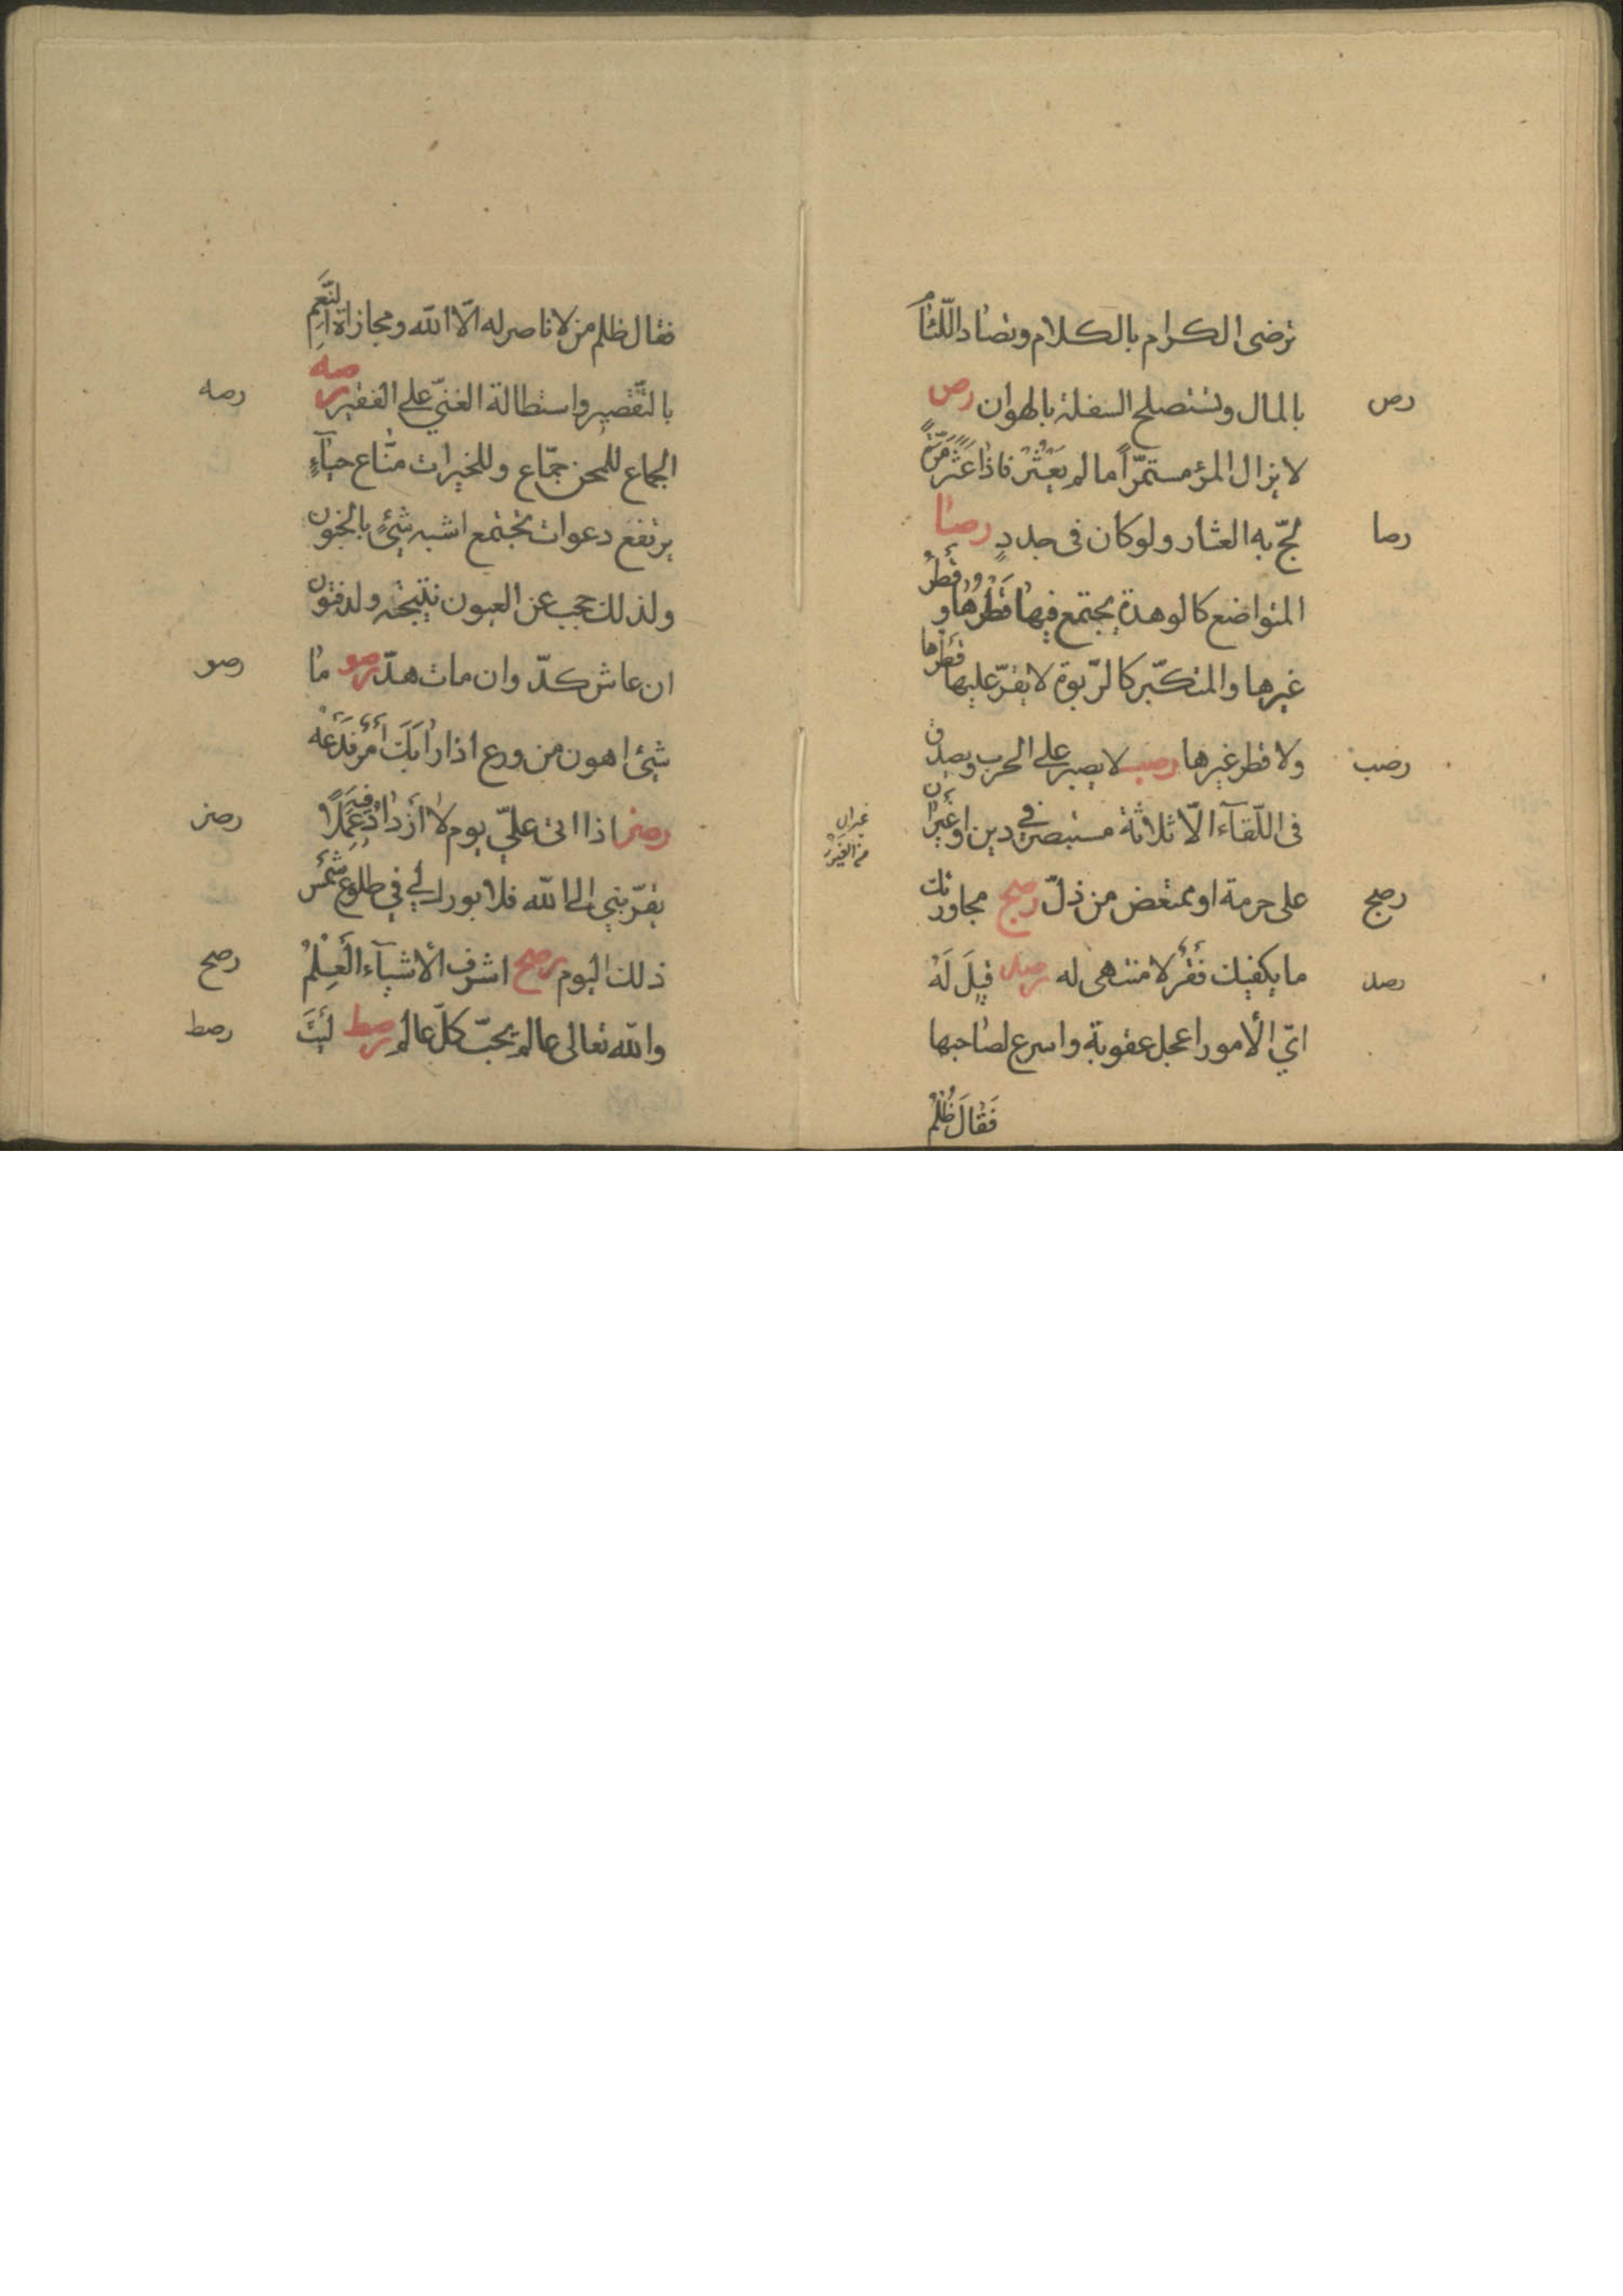 ترضى الكرام بالكلام وتصاد اللّئام
بالمال وتستصلح السفلة بالهوان رص
رص
لا يزال المرؤ مستمرّاً ما لم يَعْثُرْ فاذا عَثَرَ مَرَّةً
لجّ به العثار ولو كان فى جددٍ رصا
رصا
المتواضع كالوهدة يجتمع فيها قَطْرُها وقَطْرُ
غيرها والمتكبّر كالرّبوة لا يقرّ عليها قَطْرُها
ولا قطر غيرها رصب لا يصبر على الحرب ويصدق
رصب
فى اللّقآء الّا ثلاثة مستبصر في دين او غَيْرانَ
غيران
من الغَيْرَة
على حرمة او ممتعض من ذلّ رصج مجاورتك
رصج
ما يكفيك فَقْرٌ لا منتهى له رصد قِيلَ لَهُ
رصد
ايّ الأمور اعجل عقوبة واسرع لصاحبها
فَقَالَ ظُلْمُ
فقال ظلم من لا ناصر له الّا الله ومجازاة النِّعَمِ
بالتّقصير واستطالة الغنيّ على الفقير رصه
رصه
الجماع للمحن جمّاع وللخيرات منّاع حيآءٍ
يرتفع دعوات تجتمع اشبه شيْءٍ بالجنون
ولذلك حجب عن العيون نتيجته ولد فتون
ان عاش كدّ وان مات هدّ رصو ما
رصو
شيْ اهون من ورع اذا رَابَكَ أَمْرٌ فَدَعْهُ
رصز اذا اتى عليّ يوم لا أَزْدَادُ فيه عَمَلًا
رصز
يقرّبني الى الله فلا بورك لي في طلوع شَمْس
ذلك اليوم رصح اشرف الأشيآء الْعِلْمُ
رصح
والله تعالى عالم يحبّ كلّ عالم رصط لَيْتَ
رصط